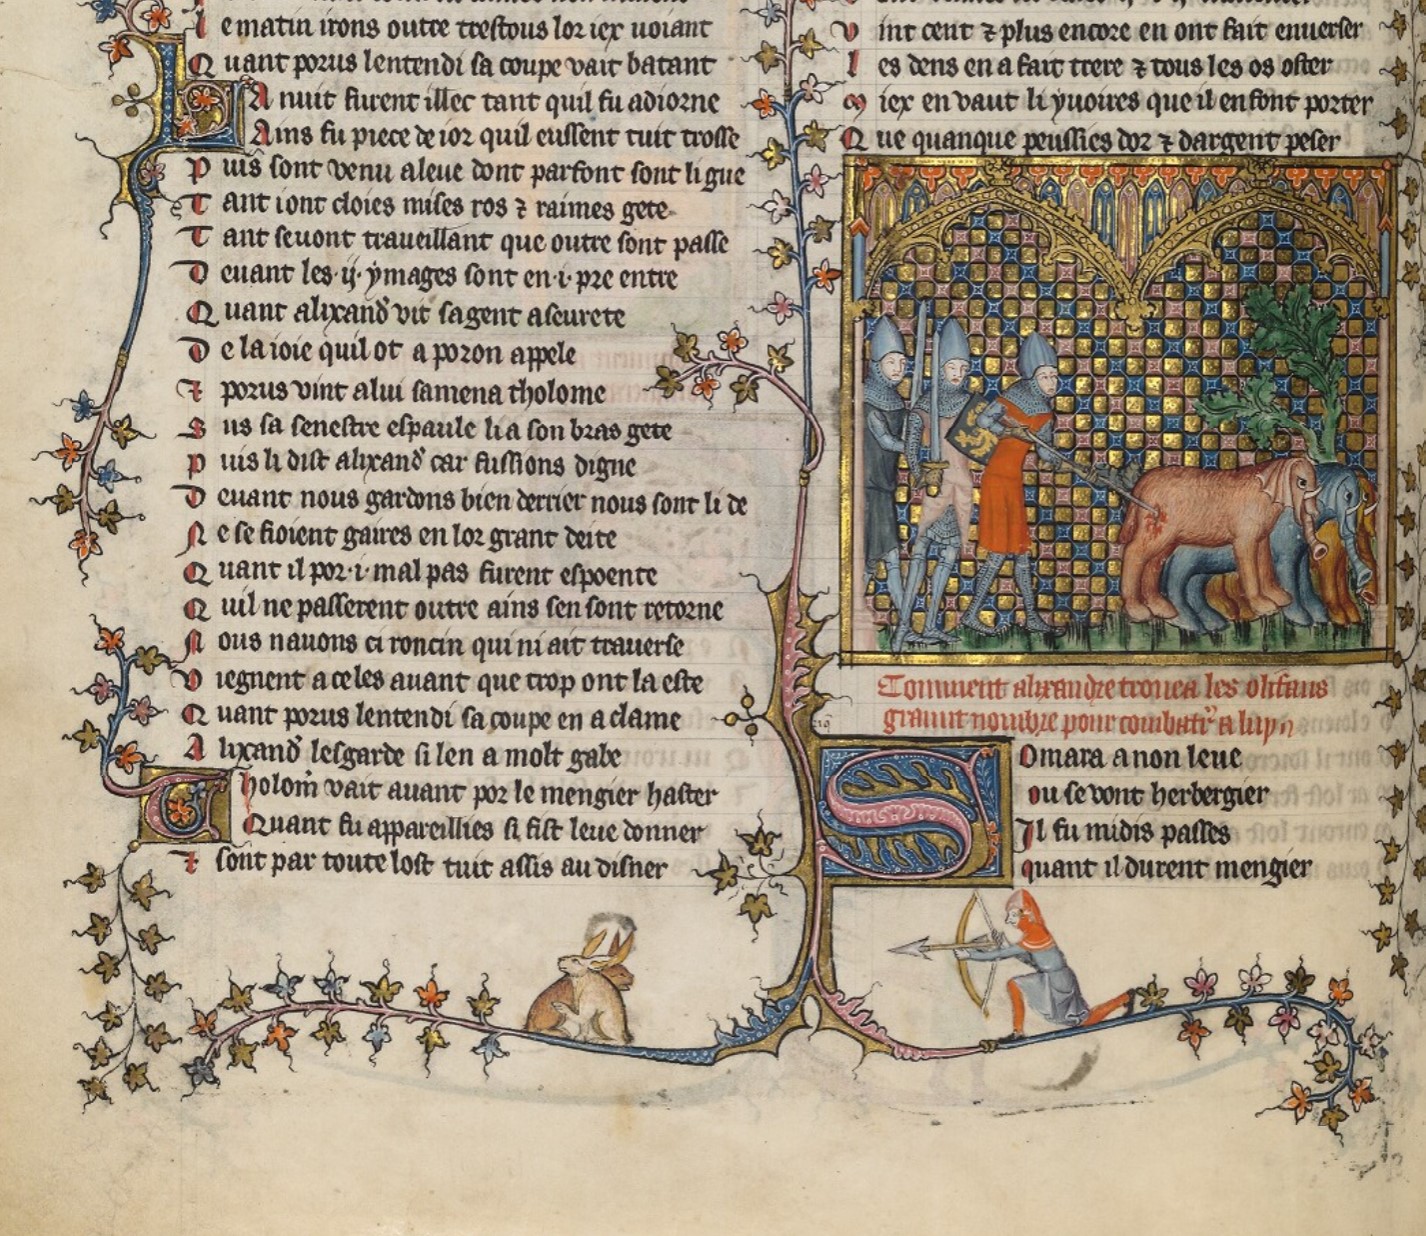 e matin irons outre trestous lor iex voiant
Quant porus lentendi sa coupe vait batant
La nuit furent illec tant quil fu adiorne
Ains fu piece de ior quil eussent tuit trosse
Puis sont venu aleue dont parfont sont li gue
Tant iont cloies mises ros ⁊ raimes gete
Tant sevont traveillant que outre sont passe
Devant les .ij. ymages sont en .i. pre entre
Quant alixand̓ vit sagent aseurete
De la ioie quil ot a poron appele
⁊ porus vint alui samena tholome
Sus sa senestre espaule li a son bras gete
Puis li dist alixand̓ car fussions digne
Devant nous gardons bien derrier nous sont li de
Ne se fioient gaires en lor grant deite
Quant il por .i. mal pas furent espoente
Quil ne passerent outre ains sen sont retorne
Nous navons ci roncin qui ni ait traverse
Viegnent a celes avant que trop ont la este
Quant porus lentendi sa coupe en a clame
Alixand̓ lesgarde si len a molt gabe
Tholom̓ vait avant por le mengier haster
Quant fu appareillies si fist leue donner
⁊ sont par toute lost tuit assis au disner
Vint cent ⁊ plus encore en ont fait enverser
les dens en a fait trere ⁊ tous les os oster
Miex en vaut li yvoires que il en font porter
Que quanque peussies dor ⁊ dargent peser
Comment alixandre trouva les olifans
grant nombre pour combatr̓ a luy
Somara a non leue
ou se vont herbergier
Il fu midis passes
quant il durent mengier